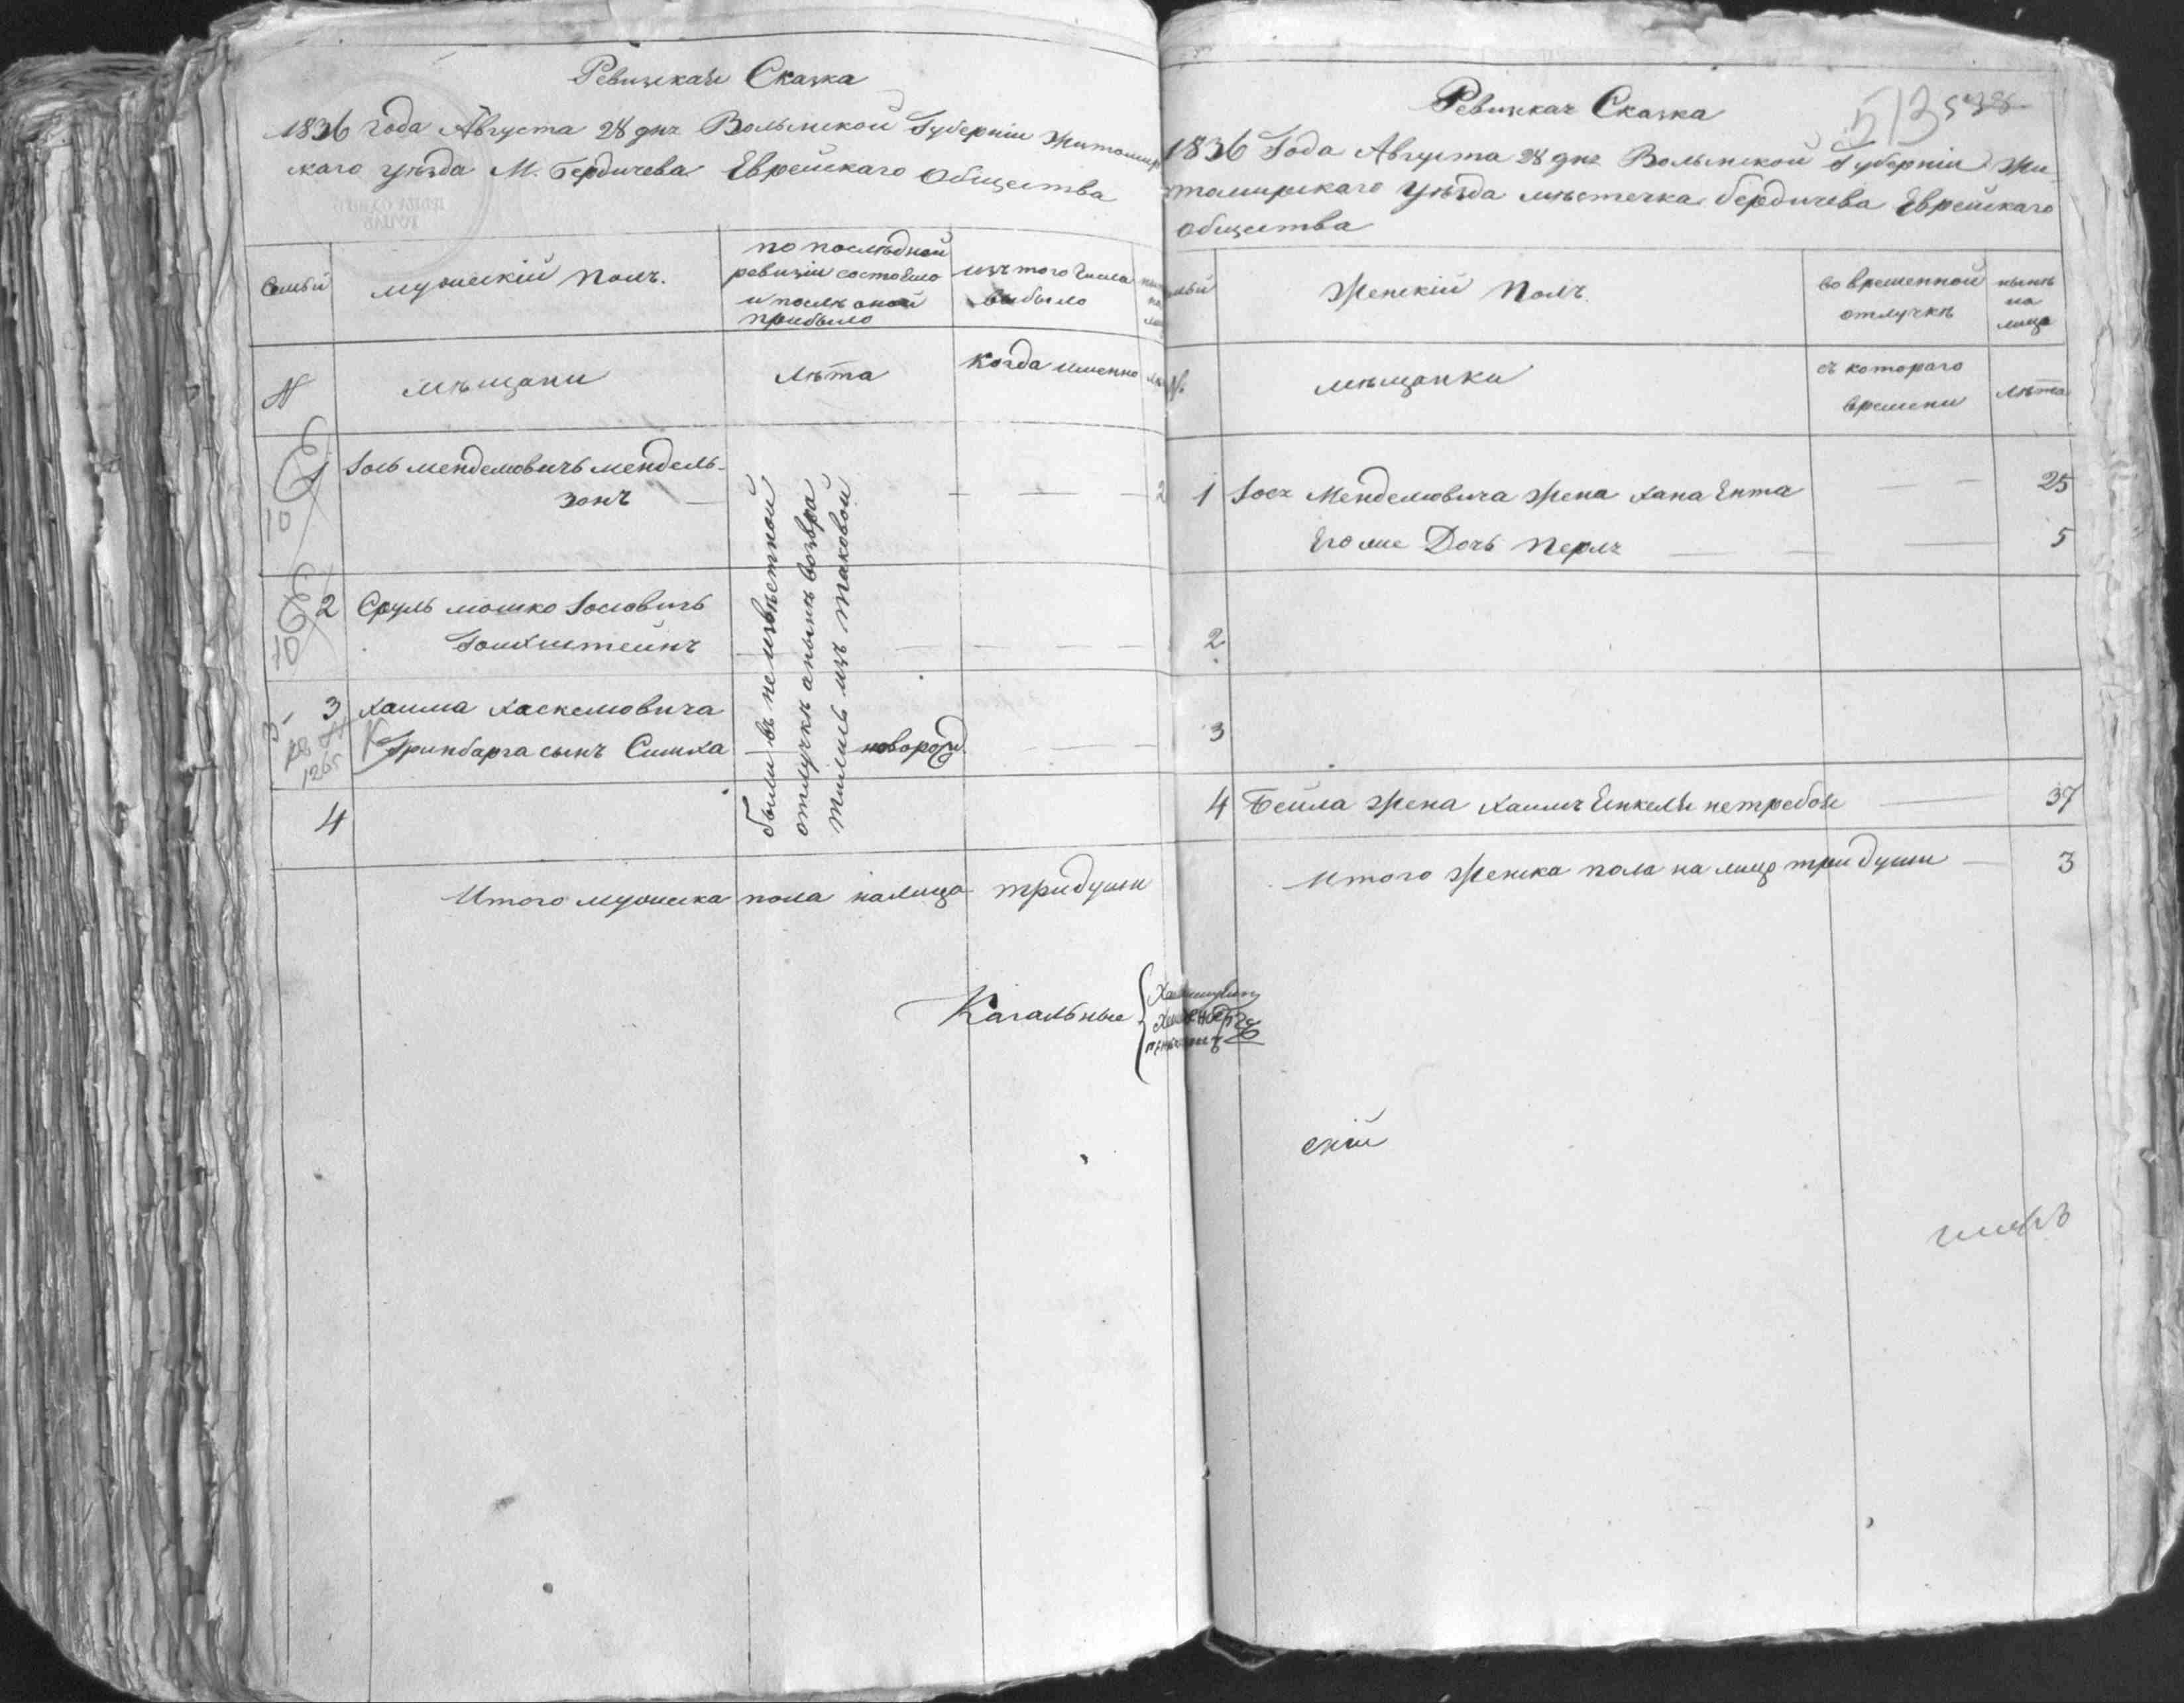 Ревизская Сказка
1836 года Августа 28 дня Волынской Губерніи Житомир
скаго уѣзда М. Бердичева Еврейскаго Общества
Семьи
мужескій полъ.
по послѣдной
ревизіи состояло
и послѣ оной
прибыло
изъ того числа
выбыло
№
мѣщани
лѣта
когда именно
1
Іось Менделіовичъ Мендель-
зонъ
10
2
Сруль Мошко Іосіовичъ
Гольдштейнъ
10
3
Хаима Хаскеліовича
Гринбарга сынъ Симха
новорожд.
1265
4
были въ неизвѣстной
отлучкѣ а нынѣ возвра
тились изъ таковой
Итого мужеска пола на лицо три души
Кагальные
Ревизская Сказка
513
538
1836 Года Августа 28 дня Волынской Губерніи Жи-
томирскаго уѣзда мѣстечка Бердичева Еврейскаго
Общества
мьи
Женскій Полъ.
во временной
отлучкѣ
нынѣ
на
лицо
№
мѣщанки
съ котораго
времени
лѣта
1
Іося Менделіовича жена Хана Ента
25
Его же Дочь Перля
5
2
3
4
Бейла жена Хаима Енкеля нетребов
37
Итого женска пола на лицо три души
3
скій